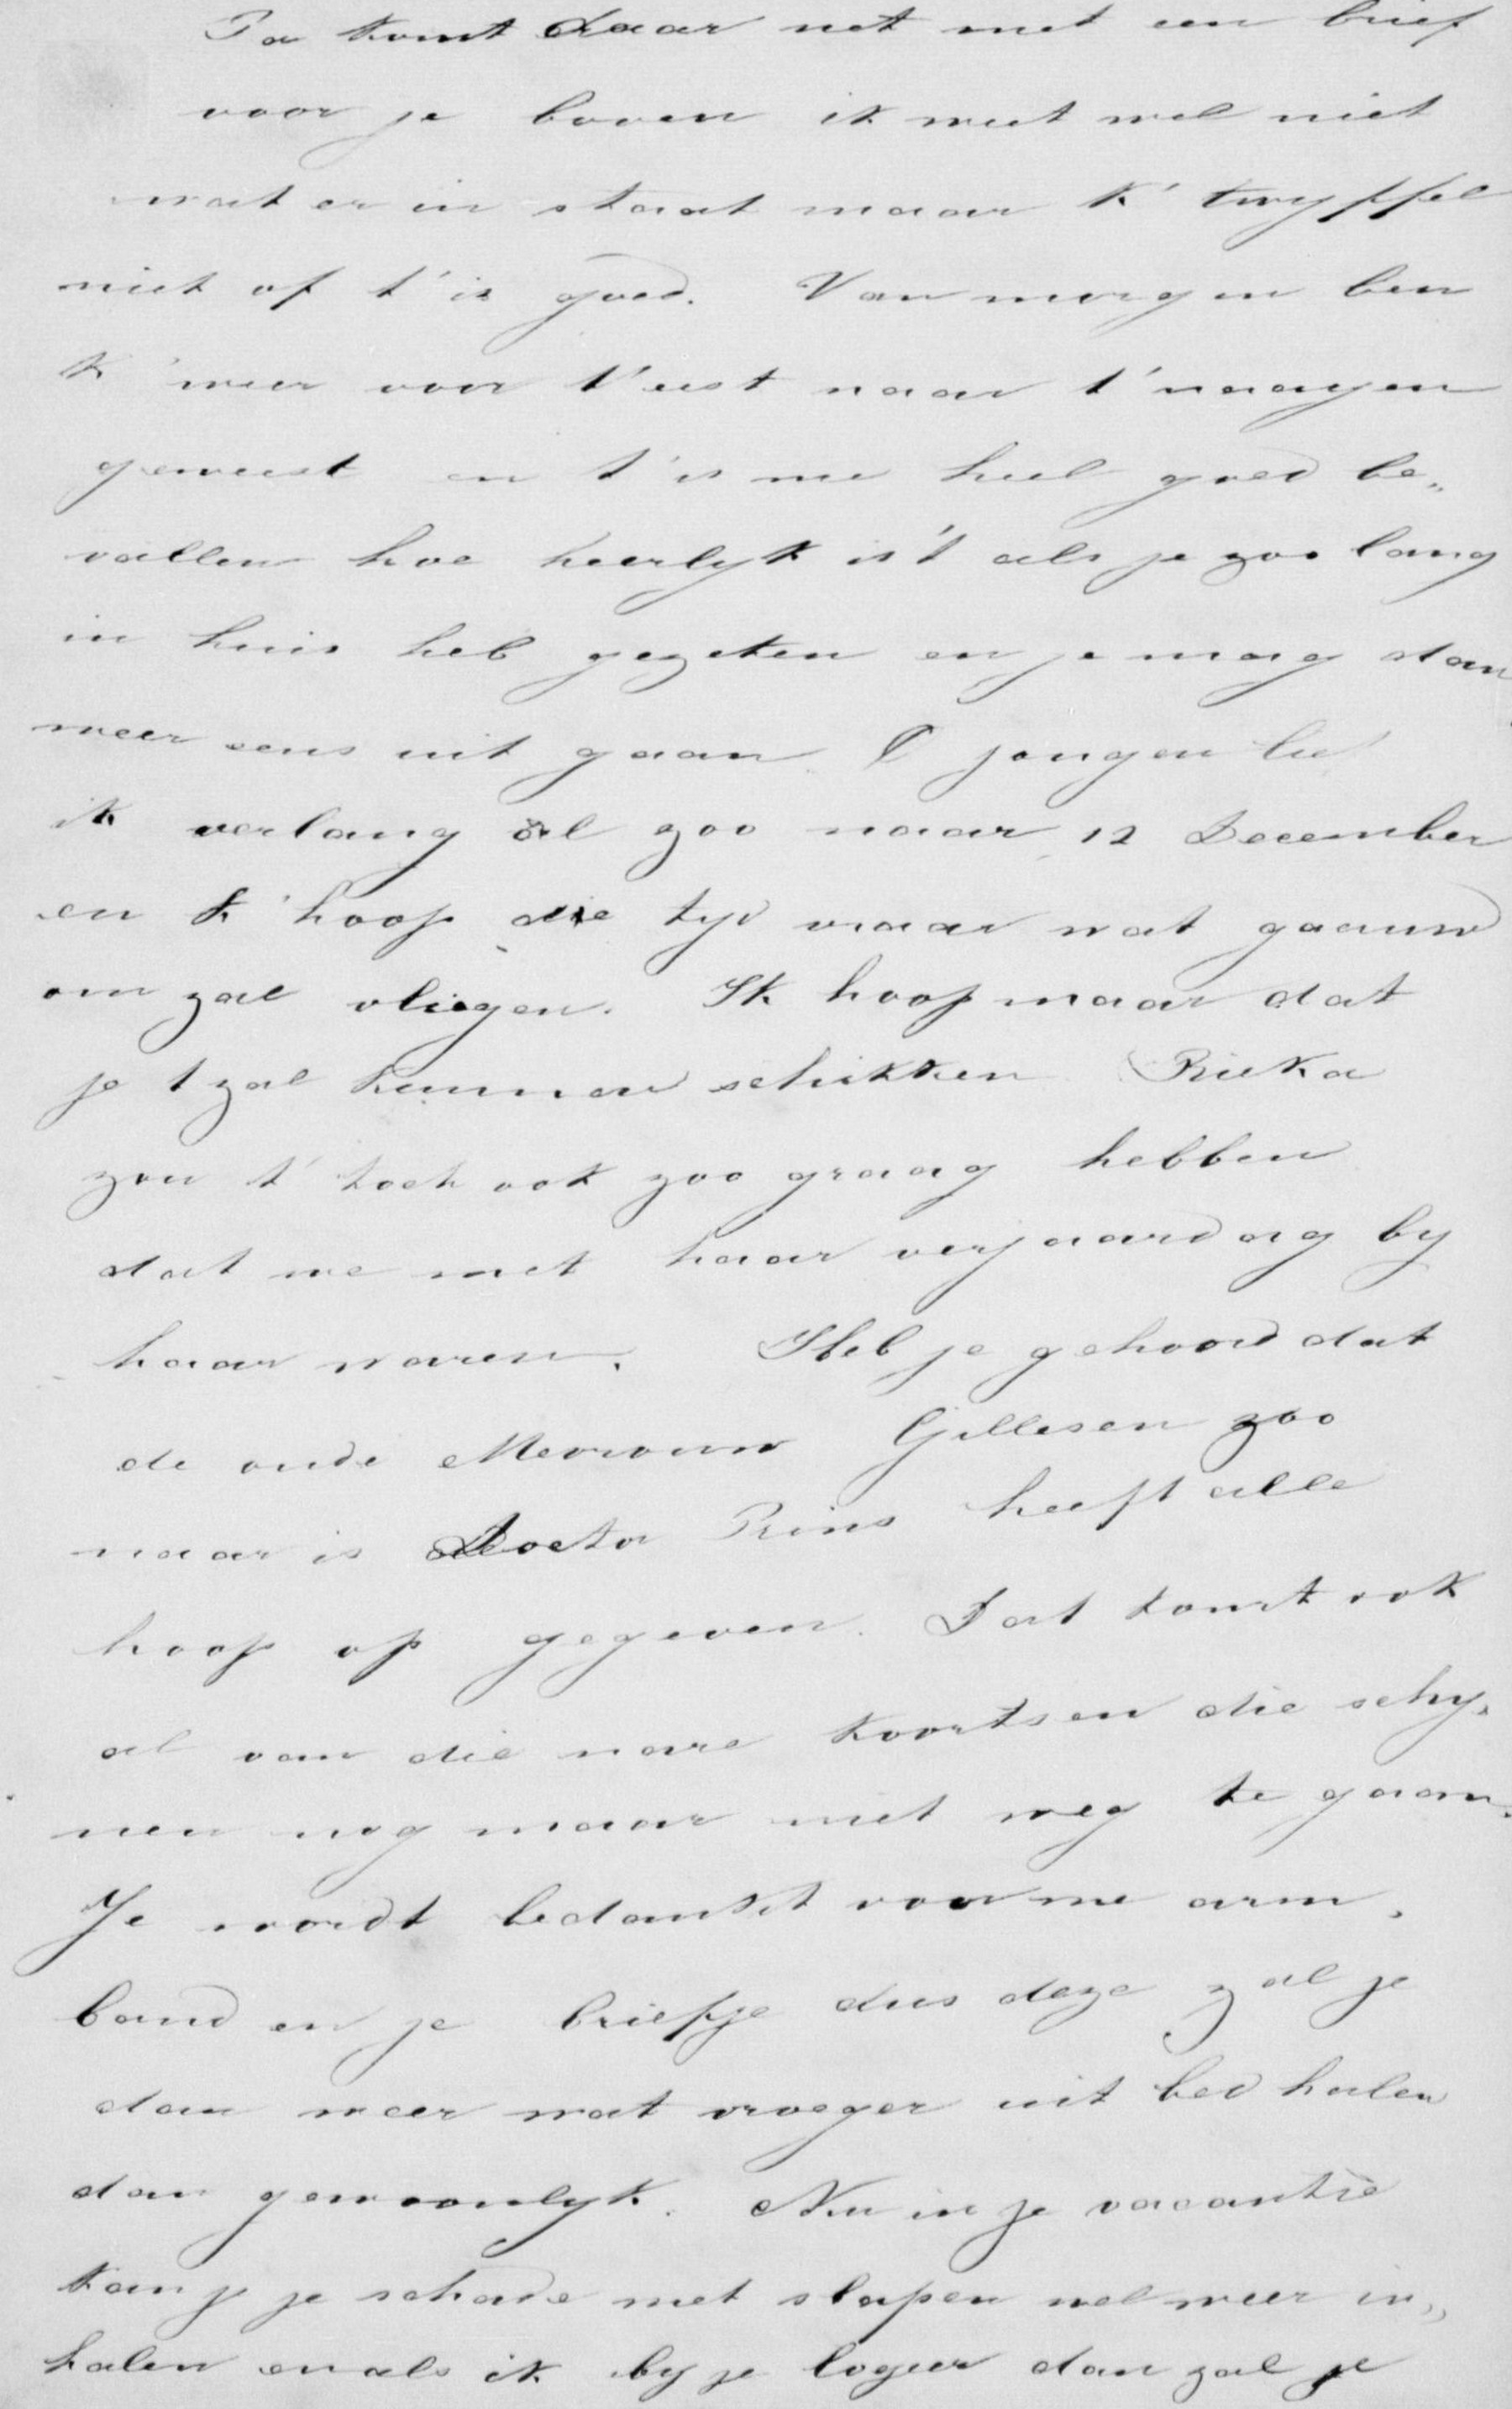 Pa komt daar net met een brief
voor je boven ik weet wel niet
wat er in staat maar k' twyffel
niet of t' is goed. Van morgen ben
k' weer voor t' eerst naar t' naayen
geweest en t' is me heel goed be„
vallen hoe heerlyk is 't als je zoo lang
in huis heb gezeten en je mag dan
weer eens uit gaan. O jongen lie
ik verlang al zoo naar 12 December
en k' hoop die tyd maar wat gaauw
om zal vliegen. Ik hoop maar dat
je t zal kunnen schikken Rieka
zou t' toch ook zoo graag hebben
dat we met haar verjaardag by
haar waren. Heb je gehoord dat
de oude Mevrouw Gillesen zoo
naar is Doctor Prins heeft alle
hoop op gegeven. Dat komt ook
al van die nare koortsen die schy„
nen nog maar niet weg te gaan.
Je wordt bedankt voor me arm„
band en je briefje dus deze zal je
dan weer wat vroeger uit bed halen
dan gewoonlyk. Nu in je vacantie
kan j je schade met slapen wel weer in„
halen en als ik by je logeer dan zal je